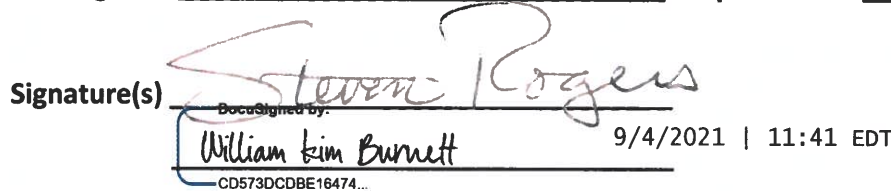 Signature(s) Steven Rogers
DocuSigned by:
William Kim Burnett 9/4/2021 | 11:41 EDT
CD573DCDBE16474...